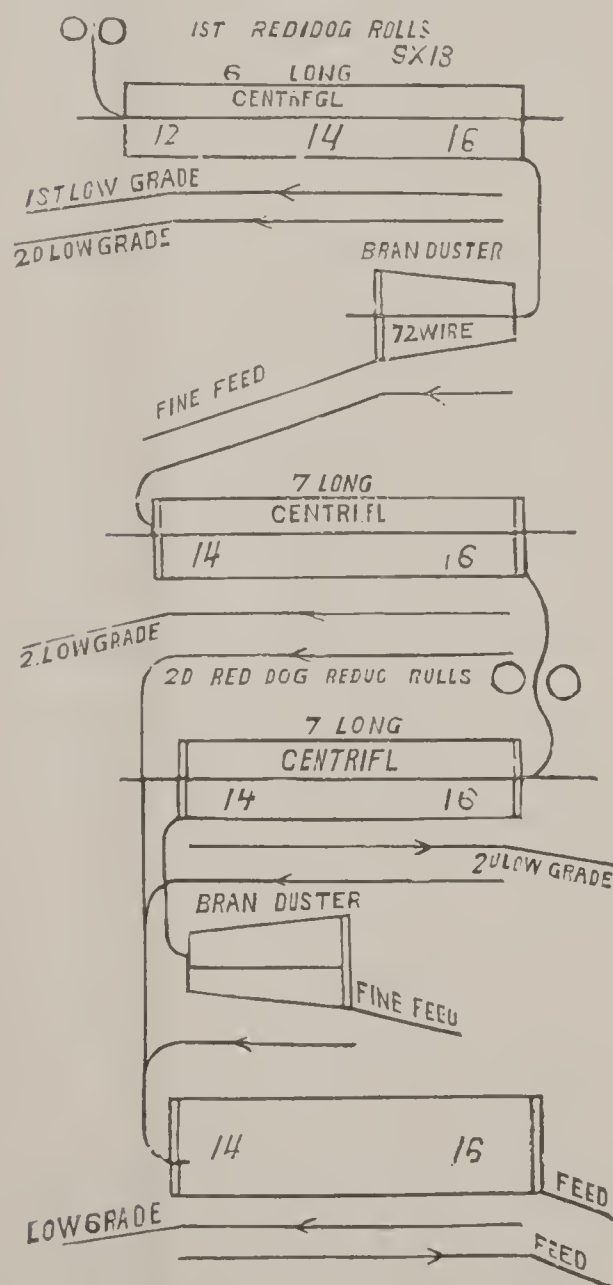 1ST REDIDOG ROLLS
9X18
6 LONG
CENTRFGL
12 14 16
1ST LOW GRADE
2D LOW GRADE
BRAN DUSTER
72 WIRE
FINE FEED
7 LONG
CENTRI.FL
14 16
2. LOW GRADE
2D RED DOG REDUC ROLLS
7 LONG
CENTRIFL
14 16
2D LOW GRADE
BRAN DUSTER
FINE FEED
14 16
FEED
LOW GRADE
FEED